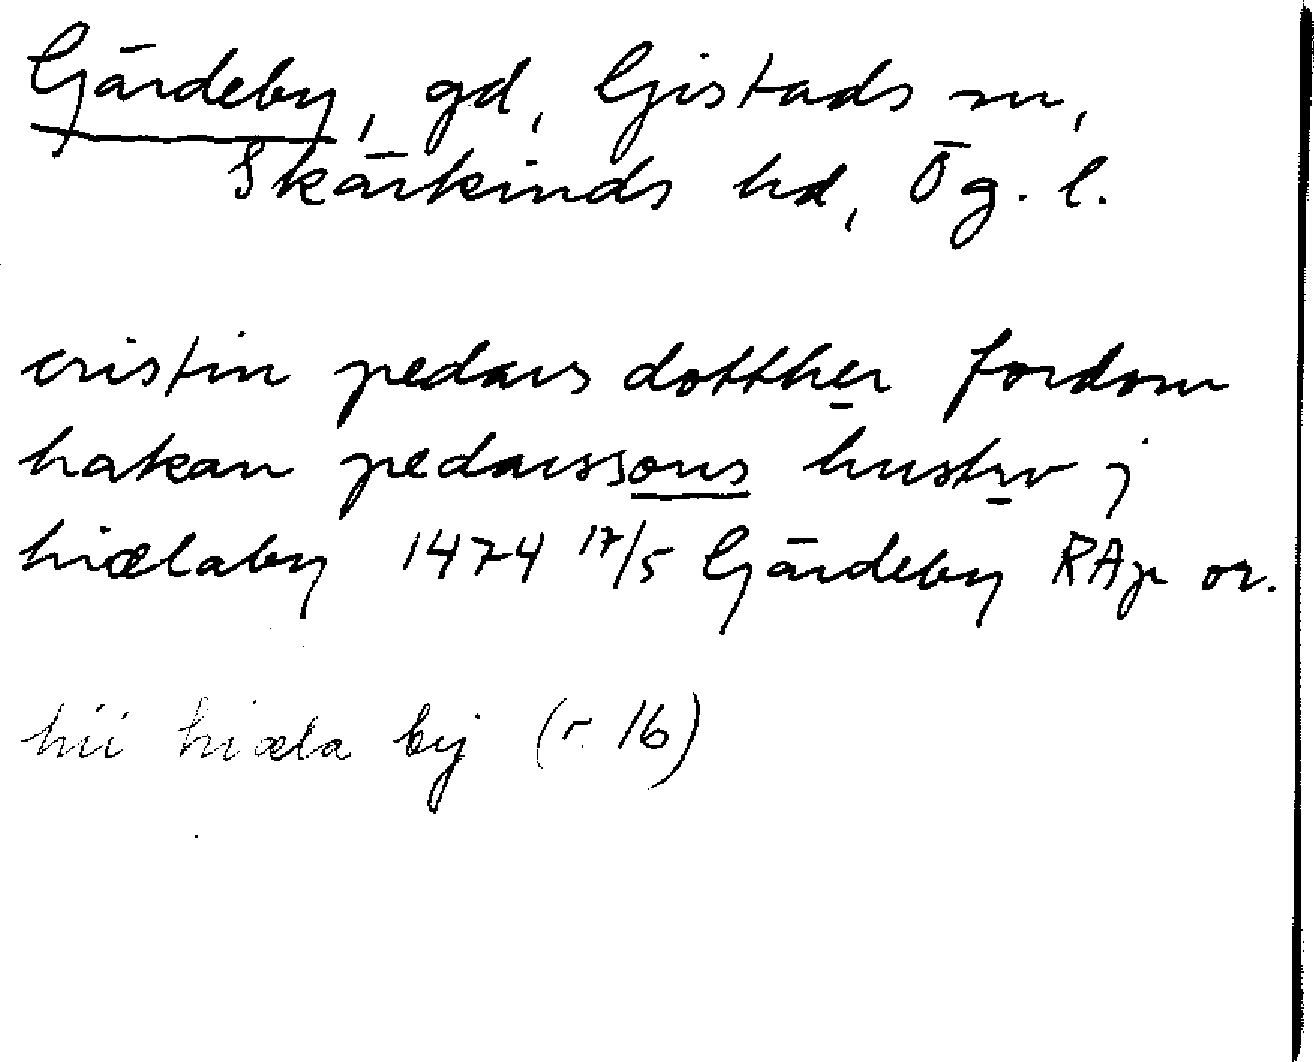 Gärdeby, gd, Gistads sn,
Skärkinds hd, Ög. l.
cristin pedars dotther fordom
hakan pedarssons hustrv j
hiælaby 1474 17/5 Gärdeby RAp or.
hii hiæla by (r. 16)